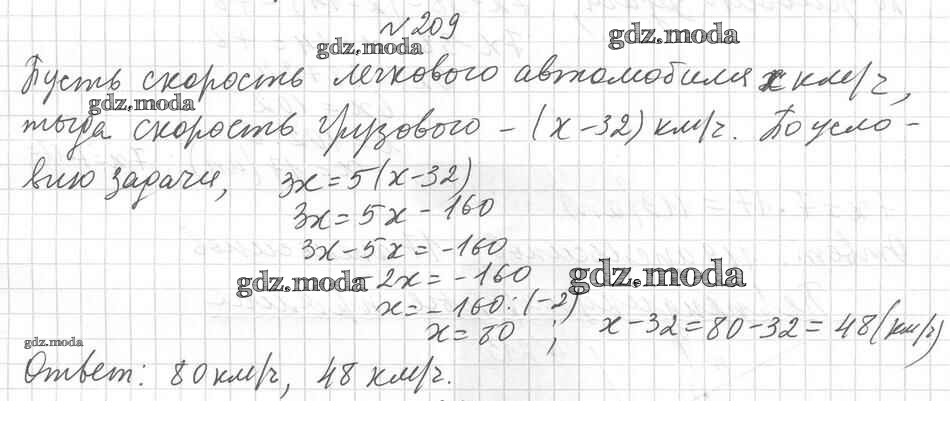 № 209
gdz.moda
gdz.moda
Пусть скорость легкового автомобиля x км/ч,
gdz.moda
тогда скорость грузового – (x-32) км/ч. По усло-
вию задачи, 3x = 5(x-32)
3x = 5x - 160
3x - 5x = -160
gdz.moda
-2x = -160
gdz.moda
x = -160 : (-2)
x = 80 ; x-32 = 80-32 = 48 (км/ч)
gdz.moda
Ответ: 80 км/ч, 48 км/ч.